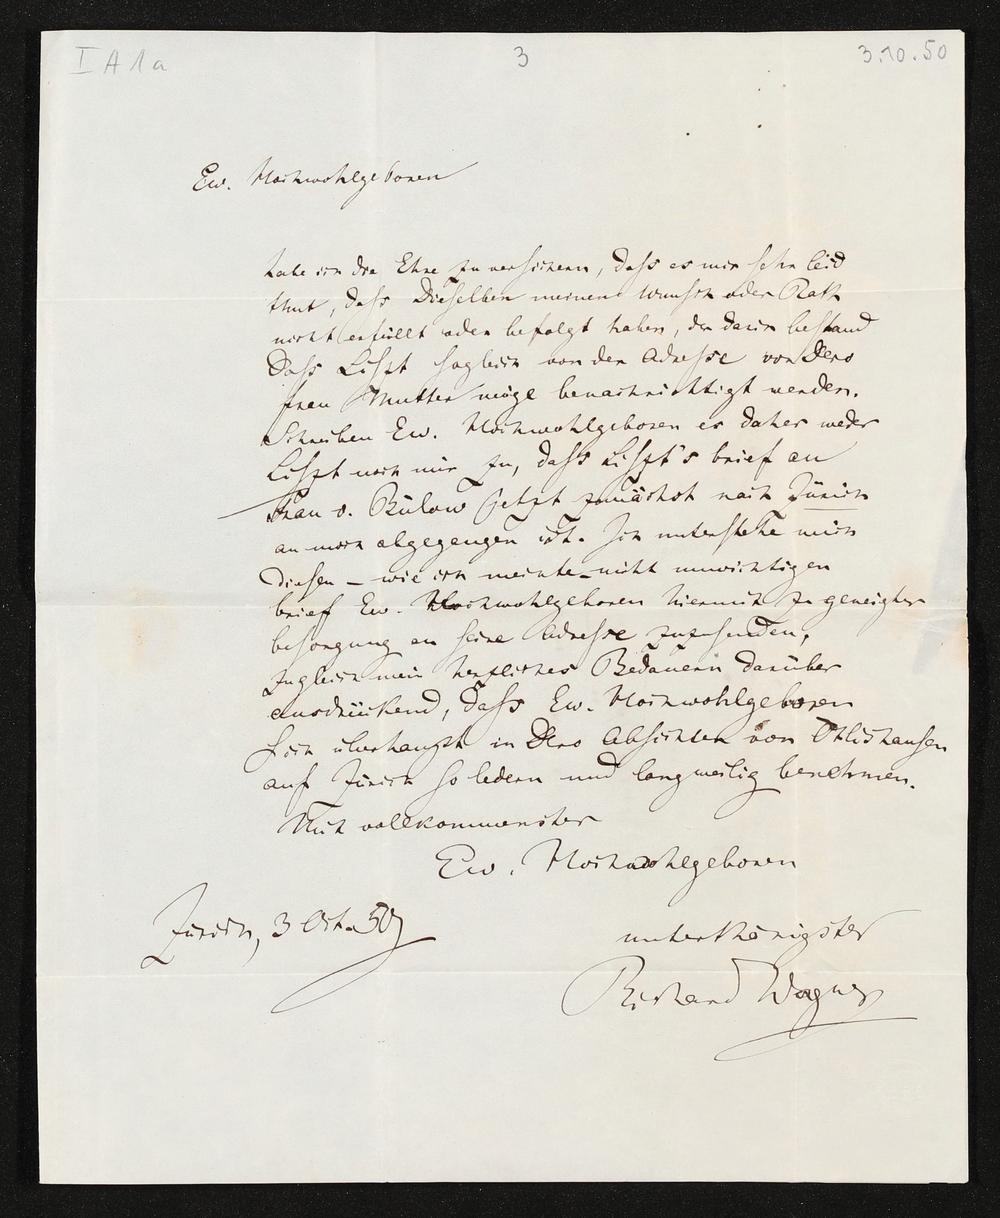 I A 1 a 3 3.10.50
Ew. Hochwohlgeboren
habe ich die Ehre zu versichern, daß es mir sehr leid
thut, daß Dieselben meinen Wunsch oder Rath
nicht erfüllt oder befolgt haben, der darin bestand
daß Liszt sogleich von der Adresse von Dero
frau Mutter möge benachrichtigt werden.
Schreiben Ew. Hochwohlgeboren es daher weder
Liszt noch mir zu, daß Liszt's brief an
Frau v. Bülow jetzt zunächst nach Zürich
an mich abgegangen ist. Ich unterstehe mich
diesen – wie ich meinte – nicht unwichtigen
brief Ew. Hochwohlgeboren hiermit zu geneigter
besorgung an seine Adresse zuzusenden,
zugleich mein herzliches Bedauern darüber
ausdrückend, daß Ew. Hochwohlgeboren
sich überhaupt in Dero Absichten von Ötlishausen
auf Zürich so ledern und langweilig benehmen.
Mit vollkommenster
Ew. Hochwohlgeboren
Zürich, 3 Oct. 50
unterthänigster
Richard Wagner